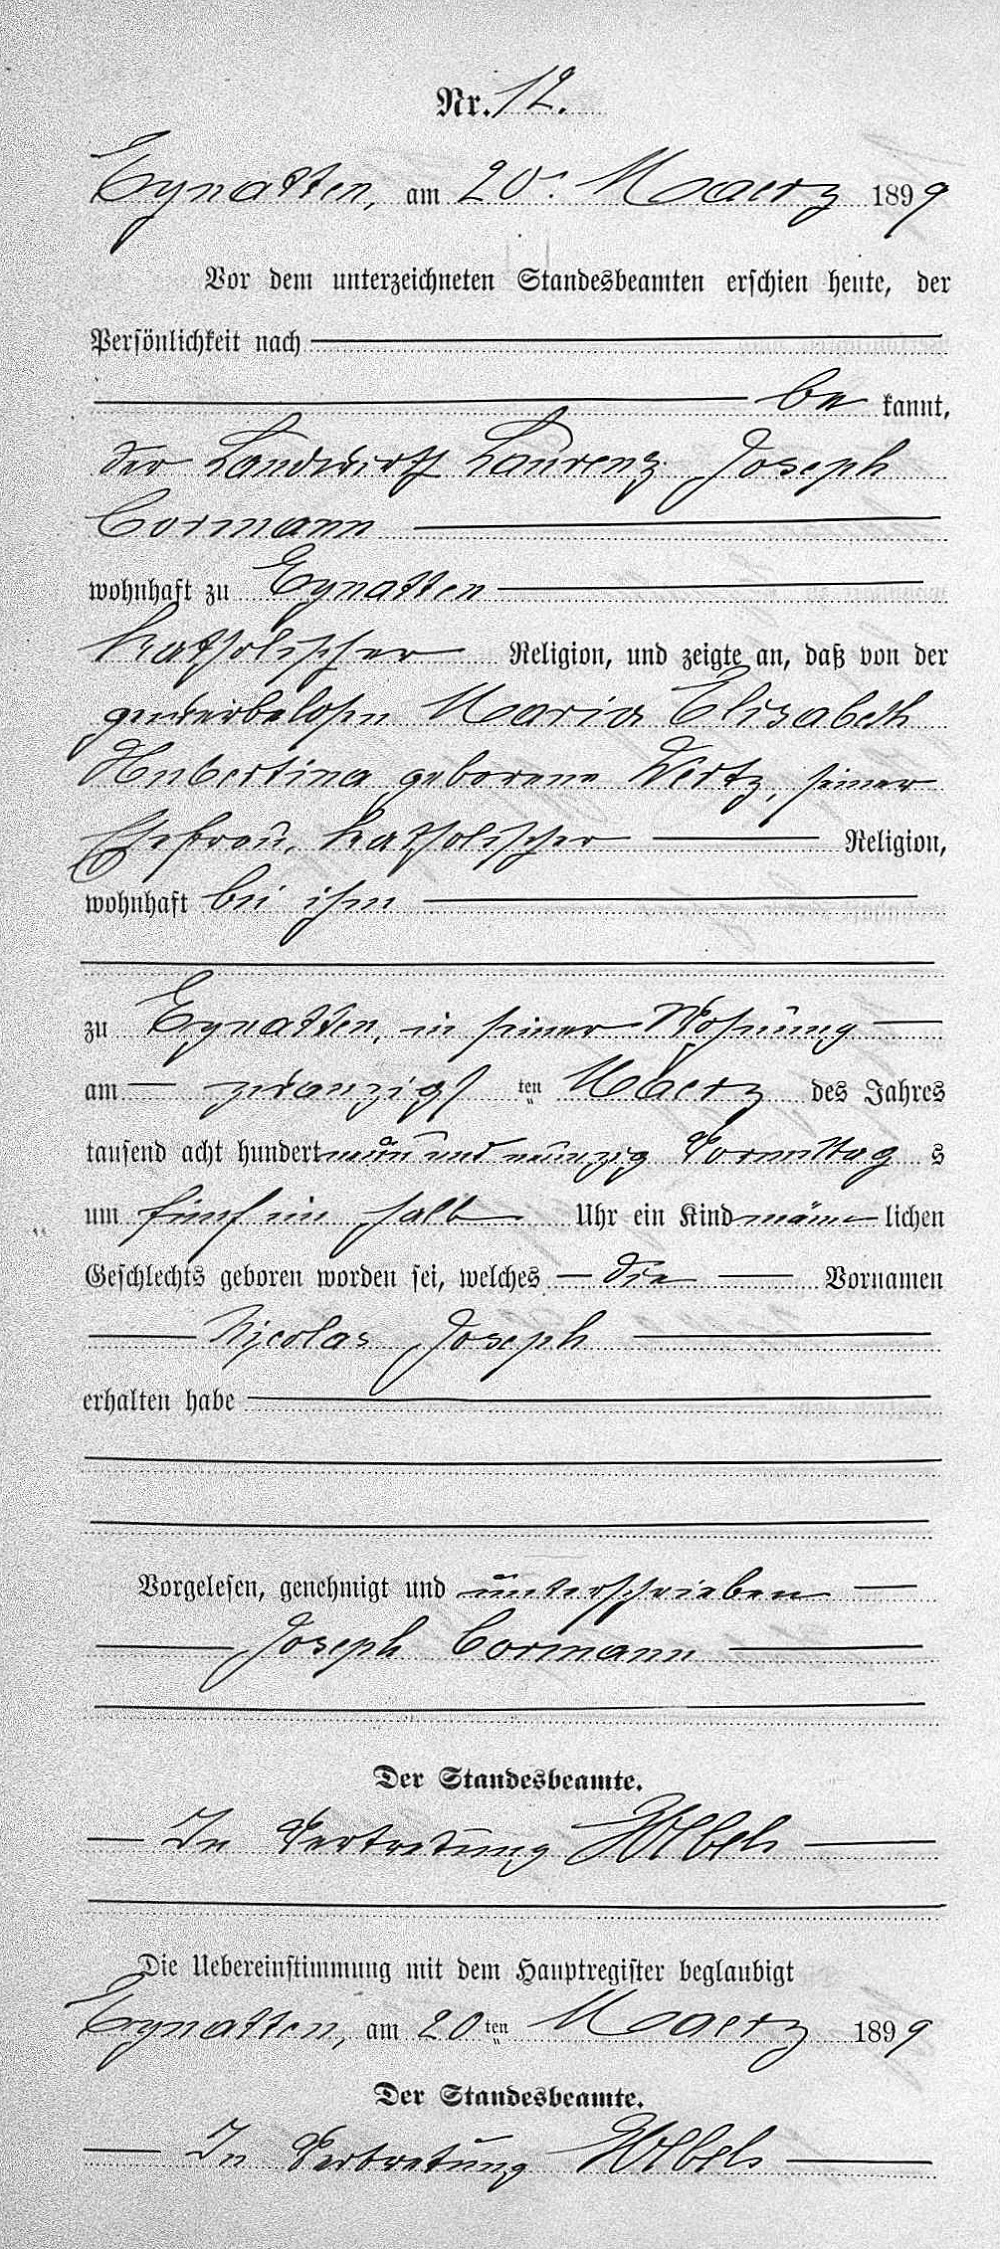 Nr. 12.
Eynatten, am 20. Maerz 1899
Vor dem unterzeichneten Standesbeamten erschien heute, der
Persönlichkeit nach
be kannt,
der Landwirth Laurenz Joseph
Cormann
wohnhaft zu Eynatten
katholischer Religion, und zeigte an, daß von der
gewerbelosen Maria Elisabeth
Hubertina geborene Wertz, seiner
Ehefrau, katholischer Religion,
wohnhaft bei ihm
zu Eynatten, in seiner Wohnung
am zwanzigs ten Maerz des Jahres
tausend acht hundert neun und neunzig Vormittag s
um fünf ein halb Uhr ein Kind männ lichen
Geschlechts geboren worden sei, welches die Vornamen
Nicolas Joseph
erhalten habe
Vorgelesen, genehmigt und unterschrieben
Joseph Cormann
Der Standesbeamte.
In Vertretung
Die Uebereinstimmung mit dem Hauptregister beglaubigt
Eynatten, am 20 ten Maerz 1899
Der Standesbeamte.
In Vertretung